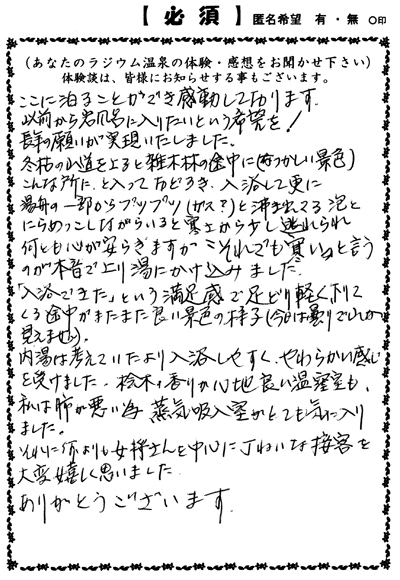 【必須】 匿名希望 有・無 ○印
(あなたのラジウム温泉の体験・感想をお聞かせ下さい)
体験談は、皆様にお知らせする事もございます。
ここに泊ることができ感動しております。
以前から岩風呂に入りたいという希望を!
長年の願いが実現いたしました。
冬枯の小道をよると雑木林の途中に(なつかしい景色)
こんな所に、と入っておどろき、入浴して更に
湯舟の一部からブツブツ(ガス?)と沸き出てる泡と
にらめっこしながらいると寒さから少し逃れられ
何とも心が安らぎますが それでも寒い。と言う
のが本音で上り湯にかけ込みました。
「入浴できた」という満足感で足どり軽く下りて
くる途中がまたまた良い景色の様子(今は曇りでしか
見えません)。
内湯は考えていたより入浴しやすく、やわらかい感じ
を受けました。桧木の香りが心地良い温窪室も、
私は肺が悪い為 蒸気吸入室がとても気に入り
ました。
それに何よりも女将さんを中心に丁ねいな接客を
大変嬉しく思いました。
ありがとうございます。